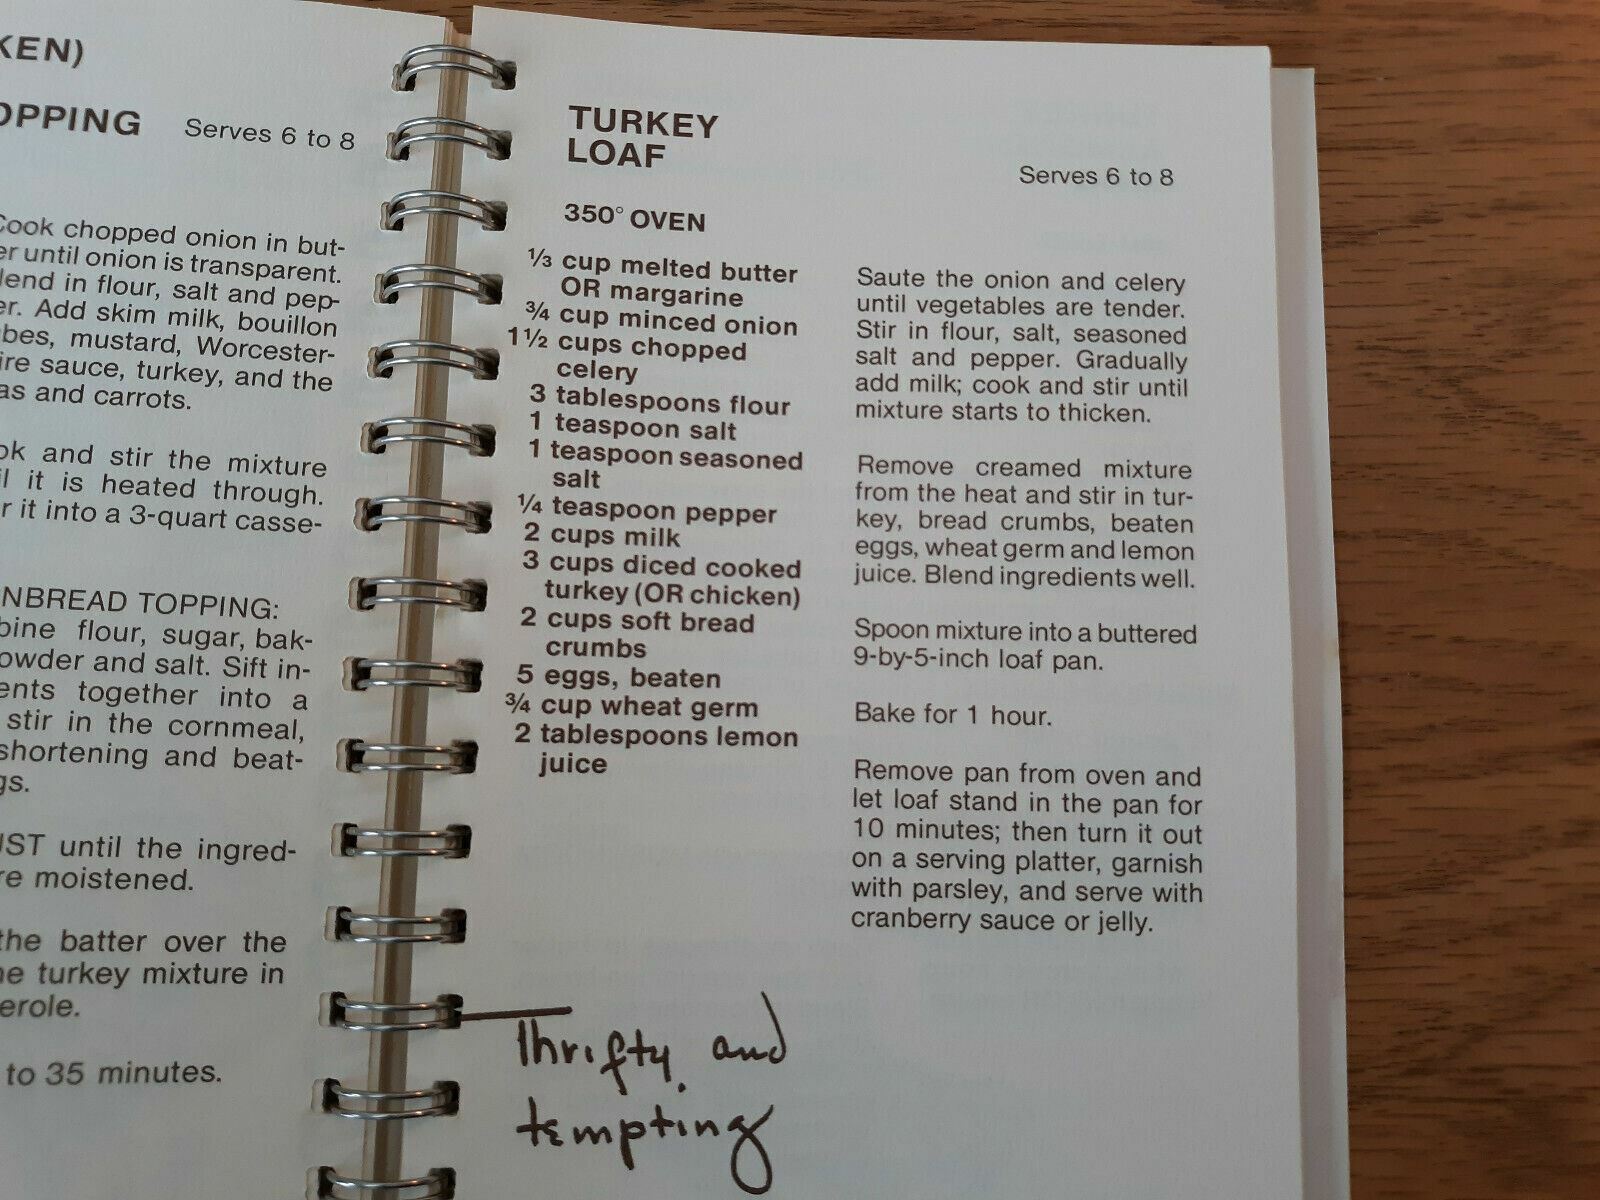 OPPING Serves 6 to 8
Cook chopped onion in but-
until onion is transparent.
in flour, salt and pep-
Add skim milk, bouillon
mustard, Worcester-
sauce, turkey, and the
and carrots.
and stir the mixture
it is heated through.
it into a 3-quart casse-
TOPPING:
flour, sugar, bak-
and salt. Sift in-
together into a
stir in the cornmeal,
shortening and beat-
until the ingred-
moistened.
the batter over the
turkey mixture in
to 35 minutes.
TURKEY
LOAF
Serves 6 to 8
350° OVEN
⅓ cup melted butter
OR margarine
¾ cup minced onion
1½ cups chopped
celery
3 tablespoons flour
1 teaspoon salt
1 teaspoon seasoned
salt
¼ teaspoon pepper
2 cups milk
3 cups diced cooked
turkey (OR chicken)
2 cups soft bread
crumbs
5 eggs, beaten
¾ cup wheat germ
2 tablespoons lemon
juice
Saute the onion and celery
until vegetables are tender.
Stir in flour, salt, seasoned
salt and pepper. Gradually
add milk; cook and stir until
mixture starts to thicken.
Remove creamed mixture
from the heat and stir in tur-
key, bread crumbs, beaten
eggs, wheat germ and lemon
juice. Blend ingredients well.
Spoon mixture into a buttered
9-by-5-inch loaf pan.
Bake for 1 hour.
Remove pan from oven and
let loaf stand in the pan for
10 minutes; then turn it out
on a serving platter, garnish
with parsley, and serve with
cranberry sauce or jelly.
Thrifty and
tempting